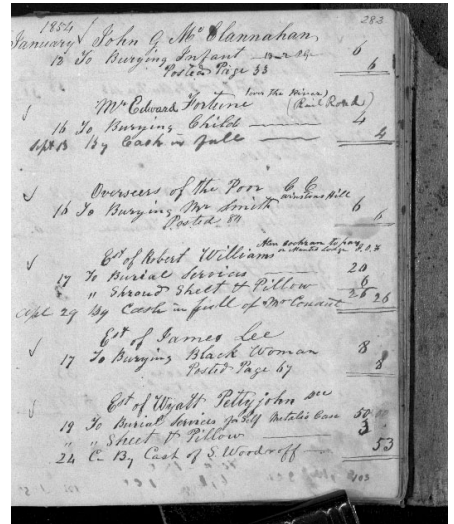 283
1854
January John G. McClannahan
13 To Burying Infant 6
Posted Page 33 6
Mr Edward Fortune (on the River) (Rail Road)
16 To Burying Child 4
Sept 13 By Cash in full 4
Overseers of the Poor C. C.
16 To Burying Mr Smith Winstons Hill 6
Posted 84 6
Est of Robert Williams to pay
I.O.F
17 To Burial Services 20
" Shroud Sheet & Pillow 6
26 26
Apl 29 By Cash in full of Mr Conant
Est of James Lee
17 To Burying Black Woman 8
Posted Page 67 8
Est of Wyatt Pettyjohn Dec
19 To Burial Services for Self Metalic Case 50
" " Sheet & Pillow 3
24 C By Cash of S. Woodroff 53
103